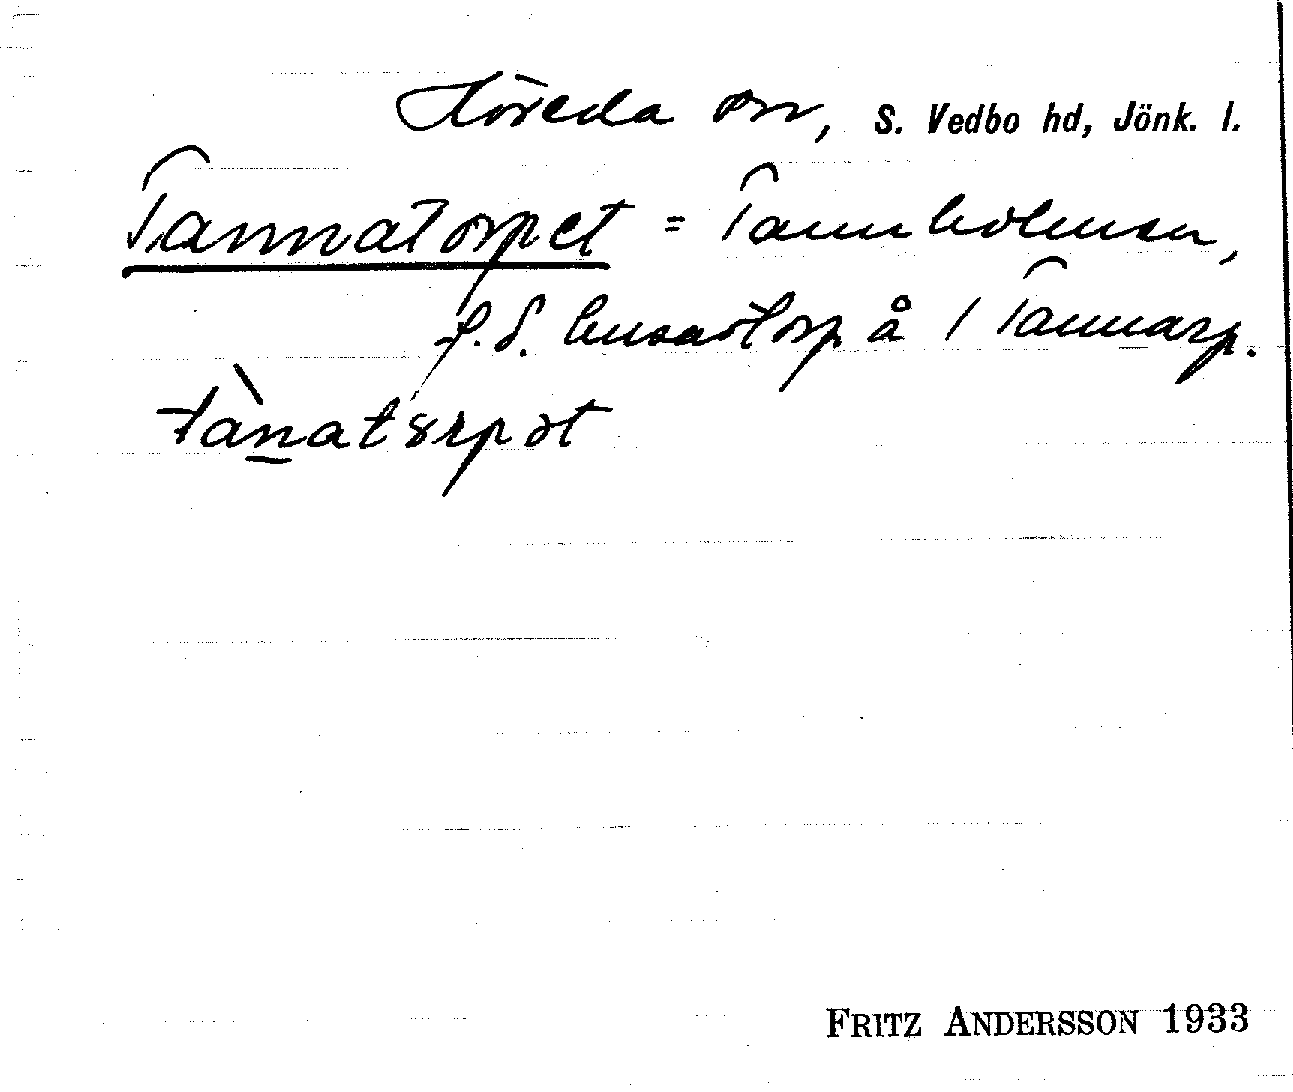 Höreda sn, S. Vedbo hd, Jönk. l.
Tannatorpet = Tannholmen,
f.d. lusastorp å 1 Tannarp.
tànatɤrpət
FRITZ ANDERSSON 1933